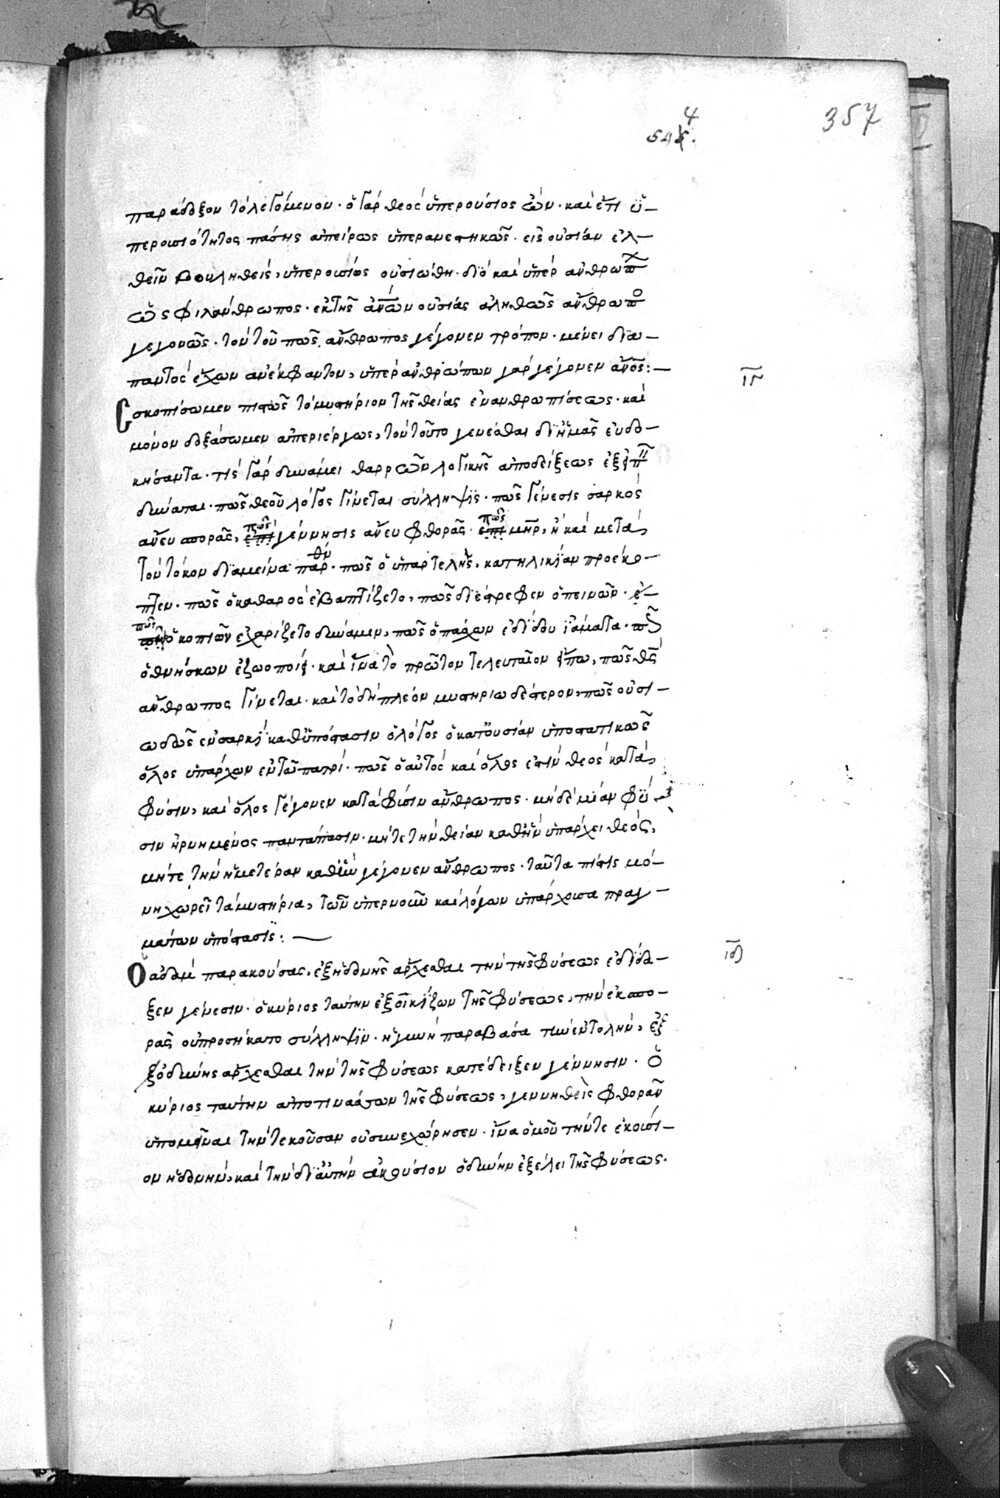 4
545.
357
παράδοξον τὸ λεγόμενον· ὁ γὰρ θεὸς ὑπερούσιος ὢν· καὶ ἔτι ὑ-
περουσιότητος πάσης ἀπείρως ὑπερανεστηκὼς· εἰς οὐσίαν ἐλ-
θεῖν βουληθεὶς, ὑπερουσίως οὐσιώθη· διὸ καὶ ὑπὲρ ἀνθρώπ
ὡς φιλάνθρωπος· ἐκ τῆς ἀνῶν οὐσίας ἀληθῶς ἄνθρωπο
γεγονὼς· τὸν τοῦ πῶς ἄνθρωπος γέγονεν τρόπον· μένει δια-
παντὸς ἔχων ἀνέκφαντον, ὑπὲρ ἀνθρώπων γὰρ γέγονεν ἄνος:—
ιγ
Εσκοπίσωμεν πιστῶς τὸ μυστήριον τῆς θείας ἐνανθρωπίσεως· καὶ
μόνον δοξάσωμεν ἀπεριέργως, τὸν τοῦτο γενέσθαι δι' ἡμᾶς εὐδο-
κήσαντα· τίς γὰρ δυνάμει θαρρῶν λογικῆς ἀποδείξεως ἐξειπ
δύναται· πῶς θεοῦ λόγος γίνεται σύλληψις· πῶς γένεσις σαρκὸς
ἄνευ σπορᾶς, πῶς γέννησις ἄνευ φθορᾶς· πῶς μηρ, ἡ καὶ μετὰ
τὸν τόκον διαμείνα παρθν· πῶς ὁ ὑπαρτελὴς, κατηλικίαν προέκο-
πτεν· πῶς ὁ καθαρὸς ἐβαπτίζετο, πῶς διέτρεφεν ὁ πεινῶν·
πῶς ὁ κοπιῶν ἐχαρίζετο δύναμιν, πῶς ὁ πάσχων ἐδίδου ἰάματα· πῶς
ὁ θνήσκων ἐζωοποίει· καὶ ἵνα τὸ πρῶτον τελευταῖον εἴπω, πῶς θς
ἄνθρωπος γίνεται· καὶ τὸ δὴ πλέον μυστηριωδέστερον, πῶς οὐσι-
ωδῶς ἐν σαρκὶ καθ' ὑπόστασιν ὁ λόγος ὁ κατ' οὐσίαν ὑποστατικῶς
ὅλος ὑπάρχων ἐν τῶ πατρί· πῶς ὁ αὐτὸς καὶ ὅλος ἐστὶν θεὸς κατὰ
φύσιν, καὶ ὅλος γέγονεν κατὰ φύσιν ἄνθρωπος· μηδεμίαν φύ
σιν ἠρνημένος παντάπασιν· μήτε τὴν θείαν καθ' ἣν ὑπάρχει θεὸς,
μήτε τὴν ἡμετέραν καθ' ἣν γέγονεν ἄνθρωπος· ταῦτα πίστις μό-
νη χωρεῖ τὰ μυστήρια, τῶν ὑπὲρ νοῦν καὶ λόγον ὑπάρχουσα πραγ-
μάτων ὑπόστασις:—
ιδ
Ο ἀδὰμ παρακούσας, ἐξ ἡδονῆς ἄρχεσθαι τὴν τῆς φύσεως ἐδίδα-
ξεν γένεσιν· ὁ κύριος ταύτην ἐξοικίζων τῆς φύσεως, τὴν ἐκ σπο-
ρᾶς οὐ προσήκατο σύλληψιν· ἡ γυνὴ παραβᾶσα τὴν ἐντολὴν, ἐξ
ὀδύνης ἄρχεσθαι τὴν τῆς φύσεως κατέδειξεν γέννησιν· ὁ
κύριος ταύτην ἀποτινάσσων τῆς φύσεως, γεννηθεὶς φθορὰν
ὑπομεῖναι τὴν τεκοῦσαν οὐ συνεχώρησεν· ἵνα ὁμοῦ τήν τε ἑκούσι-
ον ἡδονὴν, καὶ τὴν δι' αὐτὴν ἀκούσιον ὀδύνην ἐξέλει τῆς φύσεως.